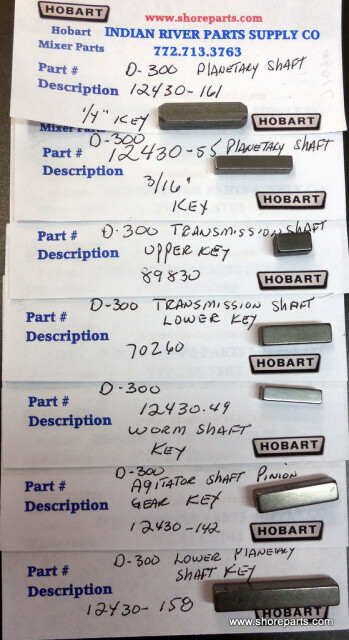 HOBART
www.shoreparts.com
Hobart INDIAN RIVER PARTS SUPPLY CO
Mixer Parts 772.713.3763
Part # D-300 PLANETARY SHAFT
Description 12430-161
1/4" KEY HOBART
Mixer Parts
D-300
Part # 12430-55 PLANETARY SHAFT
Description 3/16"
KEY HOBART
D-300 TRANSMISSION SHAFT
Part # UPPER KEY
Description 89830
HOBART
D-300 TRANSMISSION SHAFT
Part # LOWER KEY
Description
70260 HOBART
D-300
Part # 12430-49
Description WORM SHAFT
KEY HOBART
D-300
Part # AGITATOR SHAFT PINION
Description GEAR KEY
12430-142 HOBART
D-300 LOWER PLANETARY
Part # SHAFT KEY
Description
12430-158 HOBART
www.shoreparts.com